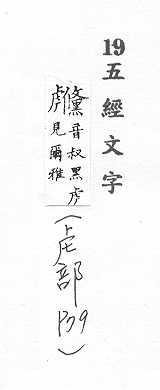 19五經文字
虪音叔黑虎
見爾雅
(虍部P39)